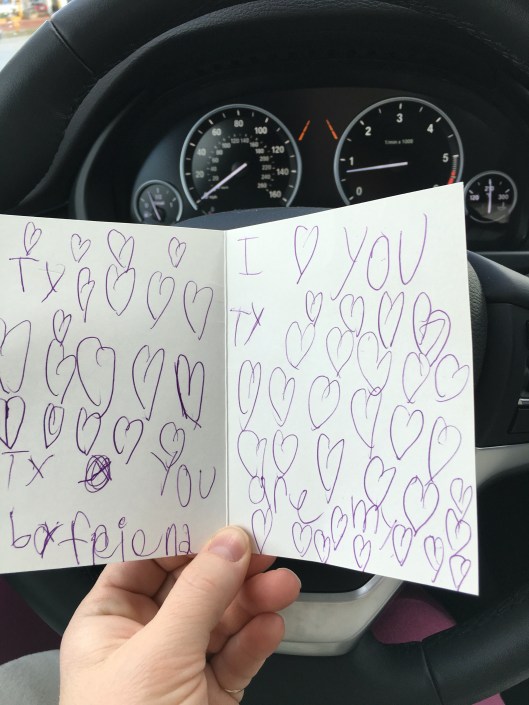 TX
TX YOU
boyfriend
I ♡ YOU
TX
are my
20 60 80 100 120 140 160
0 1 2 3 4 5
1/min x 1000